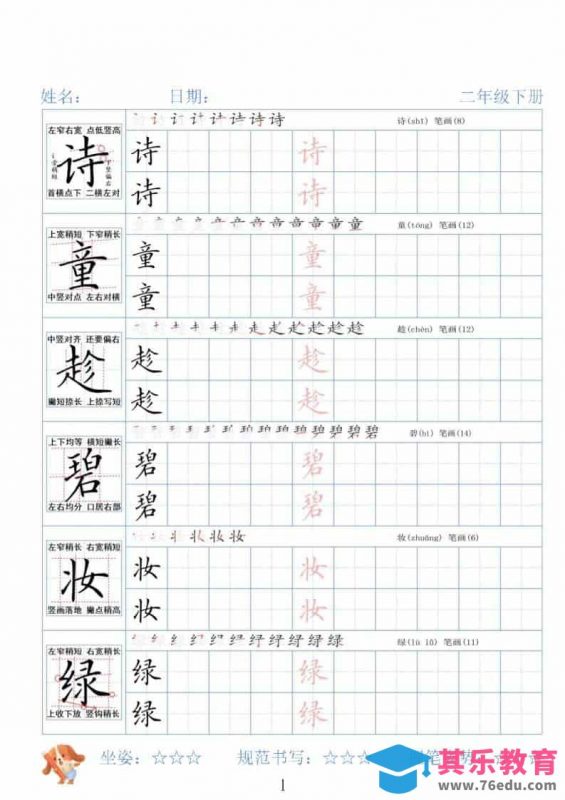 姓名： 日期： 二年级下册
诗(shī) 笔画(8)
左窄右宽 点低竖高
诗 诗 诗
下竖偏右
诗 诗
首横点下 二横左对
童(tóng) 笔画(12)
上宽稍短 下窄稍长
童 童 童
童 童
中竖对点 左右对横
趁(chèn) 笔画(12)
中竖对齐 还要偏右
趁 趁 趁
趁 趁
撇短捺长 上捺写短
碧(bì) 笔画(14)
上下均等 横短撇长
碧 碧 碧
碧 碧
左右均分 口居右部
妆(zhuāng) 笔画(6)
左窄稍长 右宽稍短
妆 妆 妆
妆 妆
竖画落地 撇点稍高
绿(lù lǜ) 笔画(11)
左窄稍短 右宽稍长
绿 绿 绿
绿 绿
上收下放 竖钩稍长
坐姿：☆☆☆ 规范书写：☆☆☆
其乐教育
www.76edu.com
1